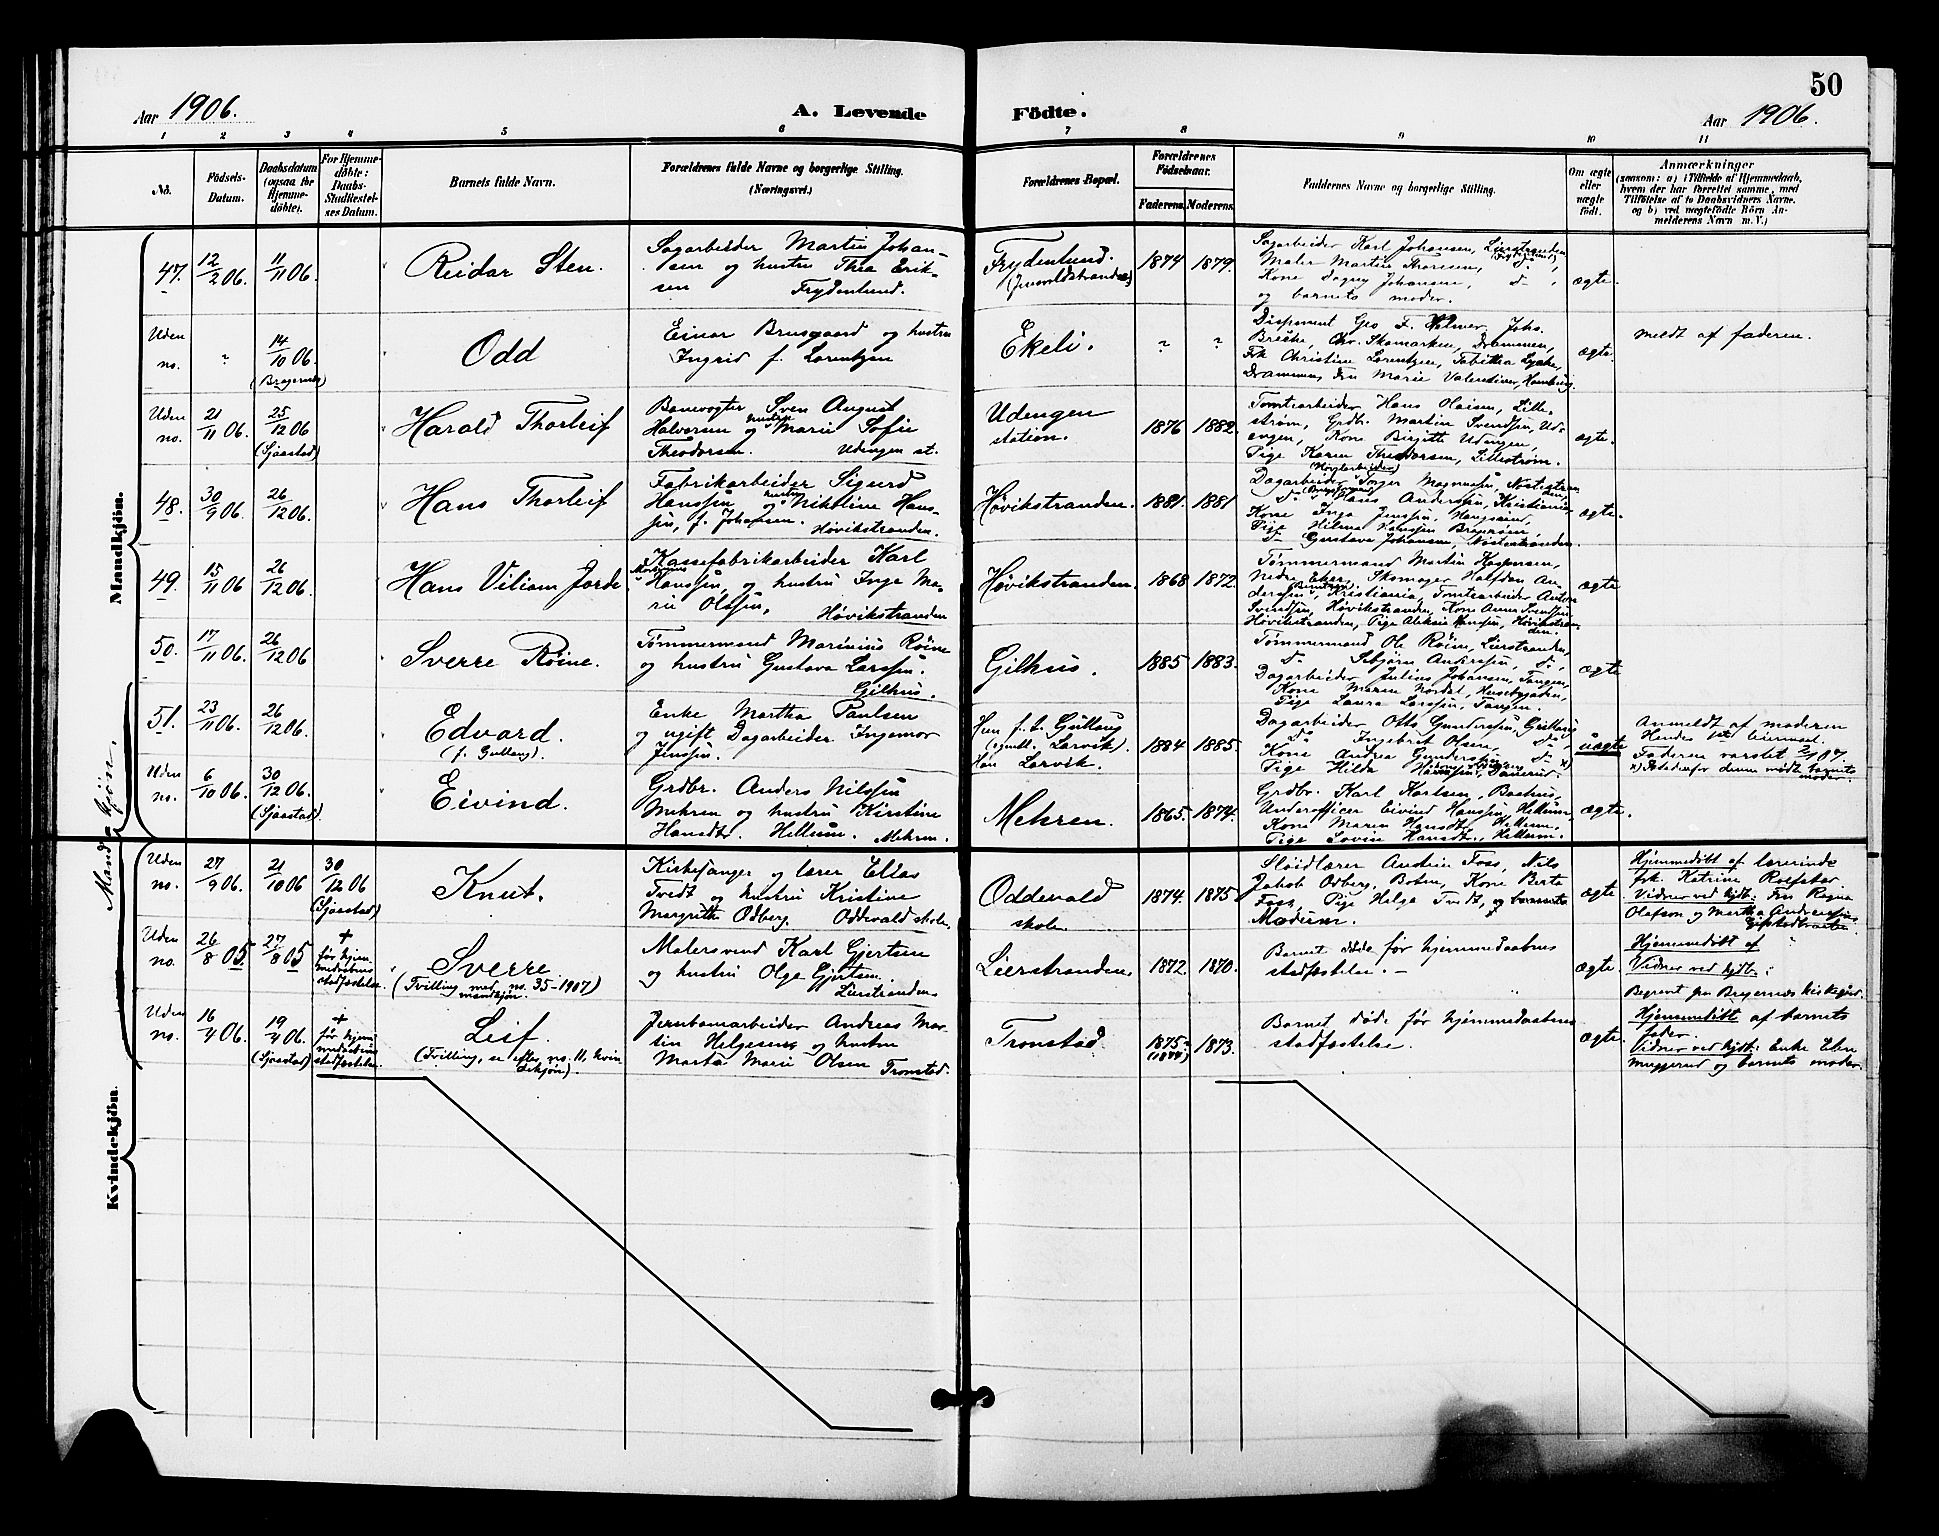 50
Aar 1906.
A. Levende
Födte.
Aar 1906.
1 2 3 4 5 6 7 8 9 10 11
No.
Födsels-
Datum.
Daabsdatum
(ogsaa for
Hjemme-
döbte).
For Hjemme-
döbte:
Daabs-
Stadfæstel-
ses Datum.
Barnets fulde Navn.
Forældrenes fulde Navne og borgerlige Stilling.
(Næringsvei.)
Forældrenes Bopæl.
Forældrenes
Födselsaar.
Faderens. Moderens.
Faddernes Navne og borgerlige Stilling.
Om ægte
eller
uægte
födt.
Anmærkninger
(saasom: a) i Tilfælde af Hjemmedaab,
hvem der har forrettet samme, med
Tilföielse af to Daabsvidners Navne,
og b) ved uægtefödte Börn An-
melderens Navn m. V.)
Mandkjön.
47. 12/2 06. 11/11 06.
Reidar Sten.
Sagarbeider Martin Johan-
sen og hustru Thea Erik-
sen Frydenlund.
Frydenlund.
1874 1879.
Sagarbeider Karl Johansen, Lierstranden
Maler Martin Thoresen,
Kone Dagny Johansen, do
og barnets moder.
ægte.
Uden
no. ? 14/10 06.
(Bragernes)
Odd
Einar Brusgaard og hustru
Ingrid f. Lorentzen
Ekeli.
? ?
Disponent Geo F. Johs.
Chr. Skomarken, Drammen,
Frk Christine Lorentzen, Tabitha Lyche,
Drammen, Fru Marie Valentiner, Hamburg.
ægte.
Meldt af faderen.
Uden
no. 21/11 06. 25/12 06
(Sjaastad)
Harald Thorleif
Banevogter Sven August
Halvorsen og hustru Marie Sofie
Theodorsen. Udengen st.
Udengen
station.
1876 1882.
Tomtearbeider Hans Olaisen, Lille-
strøm, Grdbr. Martin Svendsen, Ud-
engen, Kone Birgitte Udengen,
Pige Karen Theodorsen, Lillestrøm.
ægte.
48. 30/9 06. 26/12 06
Hans Thorleif
Fabrikarbeider Sigurd
Hanssen og hustru Nikoline Hans-
sen, f. Johansen. Høvikstranden.
Høvikstranden.
1881. 1881
Dagarbeider Inger Magnussen,
do Hans Andersen, Kristiania
Kone Inga Jenssen, Haugsund,
Pige Hilma Hanssen Bragerøen.
do Gustava Johansen, Nøstestranden.
ægte.
49. 15/11 06 26/12 06.
Hans Viliam Jorde
Kassefabrikarbeider Karl
Hanssen, og hustru Inga Ma-
rie Olssen, Høvikstranden
Høvikstranden.
1868 1872.
Tømmermand Martin Kaspersen,
Nedre Eker, Skomager Halfdan An-
derssen, Kristiania, Tomtearbeider Anton
Svendsen, Høvikstranden, Kone Anna Svendsen
Høvikstranden, Pige Aleksia Hanssen, Høvikstran-
den.
ægte
50. 17/11 06. 26/12 06
Sverre Røine.
Tømmermand Marinius Røine
og hustru Gustava Larssen.
Gilhus.
Gilhus.
1885 1883.
Tømmermand Ole Røine, Lierstranden,
do Sebjørn Anderssen, do,
Dagarbeider Julius Johansen, Tangen,
Kone Maren Nordal, Husebygaden,
Pige Laura Larssen, Tangen.
ægte
51. 23/11 06. 26/12 06.
Edvard.
(f. Gullaug).
Enke Martha Paulsen
og ugift Dagarbeider Ingemor
Jenssen.
Hun f. t. Gullaug
Larvik).
Han Larvik.
1884 1885.
Dagarbeider Otto Gunderssen, Gullaug
do Ingebret Olsen, do
Kone Andrea Gunderssen, do
Pige Hilda Hanssen,
uægte
Anmeldt af moderen
Hendes 1st leiermaal.
Faderen varslet 2/1 07.
x) Istedenfor denne mødte barnets
moder.
Uden
no. 6/10 06. 30/12 06.
(Sjaastad)
Eivind.
Grdbr. Anders Nilssen
Mehren og hustru Kirstine
Hansdt. Hellum. Mehren.
Mehren.
1865. 1874.
Grdbr. Karl Karlsen, Baahus,
Underofficer Eivind Hanssen, Hellum,
Kone Maren Hansdt. Hellum.
Pige Lovise Hansdt., Hellum.
ægte.
Mandkjön.
Uden
no. 27/9 06. 21/10 06 30/12 06
(Sjaastad)
Knut.
Kirkesanger og lærer Elias
Tvedt og hustru Kristine
Margrithe Odberg. Oddevald skole.
Oddevald
skole.
1874. 1875.
Sløidlærer Andrin Foss, Nils
Jakob Odberg, Boten, Kone Berta
Foss, Pige Helga Tvedt, og barnets
Modum.
ægte
Hjemmedöbt af lærerinde
frk. Katrine Rolfstad
Vidner ved hjdb: Fru Ragna
Olafsen og Martha Andreassen
Uden
no. 26/8 05. 27/8 05
†
før hjem-
medaabens
stadfæstelse.
Sverre
(Tvilling med no. 35-1907)
mandkjøn.
Malersvend Karl Gjertsen
og hustru Olga Gjertsen.
Lierstranden
Lierstranden.
1872. 1870.
Barnet døde før hjemmedaabens
stadfæstelse. —
ægte.
Hjemmedöbt af
Vidner ved hjdb.:
Begravet fra Bragernes kirkegård.
Uden
no. 16/4 06. 19/4 06.
(Sjaastad)
†
før hjem-
medaabens
stadfæstelse.
Leif.
(Tvilling, se efter no. 11, kvin-
dekjøn).
Jernbanearbeider Andreas Mar-
tin Helgesen og hustru
Marta Marie Olsen Tronstad.
Tronstad.
1875
(1877) 1873.
Barnet døde før hjemmedaabens
stadfæstelse.
ægte.
Hjemmedöbt af barnets
fader.
Vidner ved hjdb: Enke Elen
Muggerud og barnets moder.
Kvindekjön.